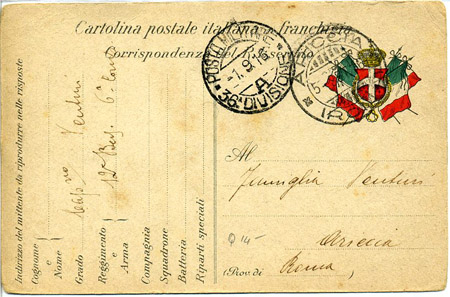 Cartolina postale italiana in franchigia
Corrispondenza del R. Esercito
POSTA MILITARE
1.9.16
A
36ª DIVISIONE
ARICCIA
Al
Famiglia Venturi
Ariccia
(Prov. di Roma)
Q 14-
Indirizzo del mittente da riprodurre nelle risposte
Cognome e Nome
Venturi
Grado
Reggimento e Arma
12º Bers. 6ª
Compagnia
Squadrone
Batteria
Riparti speciali